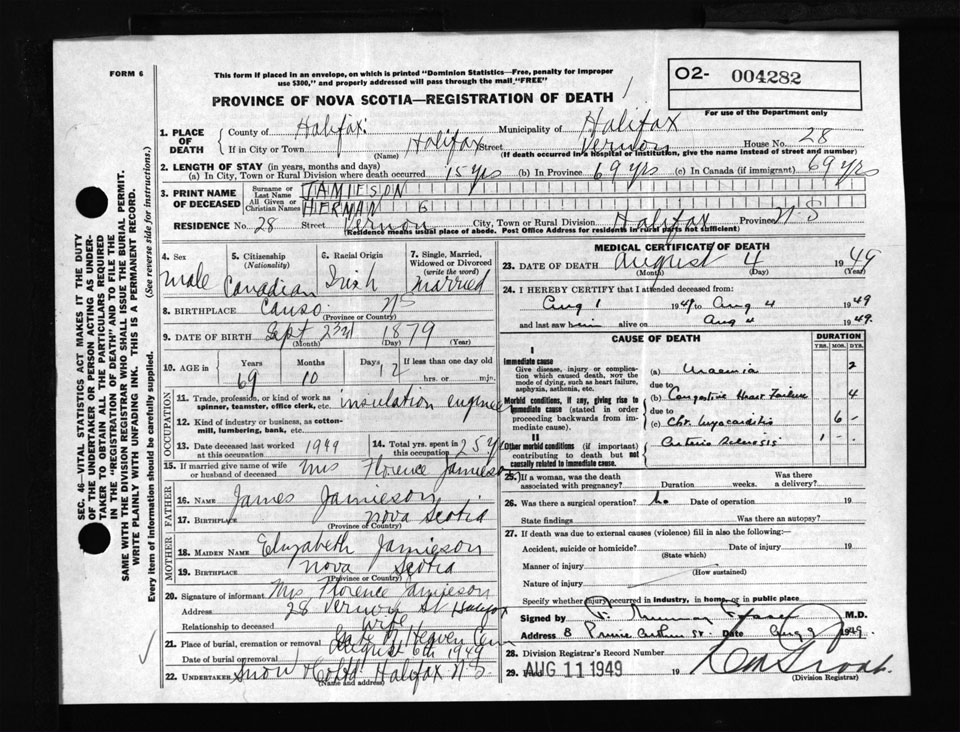 FORM 6
This form if placed in an envelope, on which is printed "Dominion Statistics—Free, penalty for improper
use $300," and properly addressed will pass through the mail "FREE"
PROVINCE OF NOVA SCOTIA—REGISTRATION OF DEATH
O2- 004282
For use of the Department only
1. PLACE OF DEATH
County of Halifax Municipality of Halifax
If in City or Town Halifax Street Vernon House No. 28
(Name) (If death occurred in a hospital or institution, give the name instead of street and number)
2. LENGTH OF STAY (in years, months and days)
(a) In City, Town or Rural Division where death occurred 15 yrs (b) In Province 69 yrs (c) In Canada (if immigrant) 69 yrs
3. PRINT NAME OF DECEASED
Surname or Last Name JAMIESON
All Given or Christian Names HERMAN G
RESIDENCE No. 28 Street Vernon City, Town or Rural Division Halifax Province N S
(Residence means usual place of abode. Post Office Address for residents in rural parts not sufficient)
4. Sex
male
5. Citizenship (Nationality)
Canadian
6. Racial Origin
Irish
7. Single, Married, Widowed or Divorced (write the word)
Married
8. BIRTHPLACE Canso NS
(Province or Country)
9. DATE OF BIRTH Sept 23rd 1879
(Month) (Day) (Year)
10. AGE in Years Months Days If less than one day old
69 10 12 hrs. or min.
OCCUPATION
11. Trade, profession, or kind of work as spinner, teamster, office clerk, etc. insulation engineer
12. Kind of industry or business, as cotton-mill, lumbering, bank, etc.
13. Date deceased last worked at this occupation 1949
14. Total yrs. spent in this occupation 25 yrs
15. If married give name of wife or husband of deceased Mrs Florence Jamieson
FATHER
16. Name James Jamieson
17. Birthplace Nova Scotia
(Province or Country)
MOTHER
18. Maiden Name Elizabeth Jamieson
19. Birthplace Nova Scotia
(Province or Country)
20. Signature of informant Mrs Florence Jamieson
Address 28 Vernon St Halifax
Relationship to deceased wife
21. Place of burial, cremation or removal Gate of Heaven Cem
Date of burial or removal August 6th 1949
22. Undertaker Snow Halifax N S
(Name and address)
MEDICAL CERTIFICATE OF DEATH
23. DATE OF DEATH August 4 1949
(Month) (Day) (Year)
24. I HEREBY CERTIFY that I attended deceased from:
Aug 1 1949 to Aug 4 1949
and last saw him alive on Aug 4 1949.
CAUSE OF DEATH
DURATION
YRS. MOS. DYS.
I
Immediate cause
Give disease, injury or complication which caused death, NOT the mode of dying, such as heart failure, asphyxia, asthenia, etc.
(a) Uraemia 2
due to
Morbid conditions, if any, giving rise to immediate cause (stated in order proceeding backwards from immediate cause).
(b) Congestive Heart Failure 4
due to
(c) Chr. Myocarditis 6 -
II
Other morbid conditions (if important) contributing to death but not causally related to immediate cause.
Arterio Sclerosis 1 - -
25. If a woman, was the death associated with pregnancy? Duration weeks. Was there a delivery?
26. Was there a surgical operation? no Date of operation 19
State findings Was there an autopsy?
27. If death was due to external causes (violence) fill in also the following:
Accident, suicide or homicide? Date of injury 19
(State which)
Manner of injury
(How sustained)
Nature of injury
Specify whether injury occurred in industry, in home, or in public place
Signed by M.D.
Address 8 Prince Arthur St. Date Aug 1949.
28. Division Registrar's Record Number
29. Filed AUG 11 1949 19
(Division Registrar)
SEC. 46 — VITAL STATISTICS ACT MAKES IT THE DUTY
OF THE UNDERTAKER OR PERSON ACTING AS UNDER-
TAKER TO OBTAIN ALL THE PARTICULARS REQUIRED
IN THE "REGISTRATION OF DEATH" AND TO FILE THE
SAME WITH THE DIVISION REGISTRAR WHO SHALL ISSUE THE BURIAL PERMIT.
WRITE PLAINLY WITH UNFADING INK. THIS IS A PERMANENT RECORD.
Every item of information should be carefully supplied. (See reverse side for instructions.)